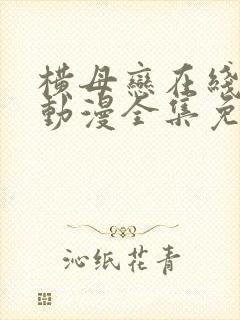 横母恋在线
動漫全集免
沁纸花青